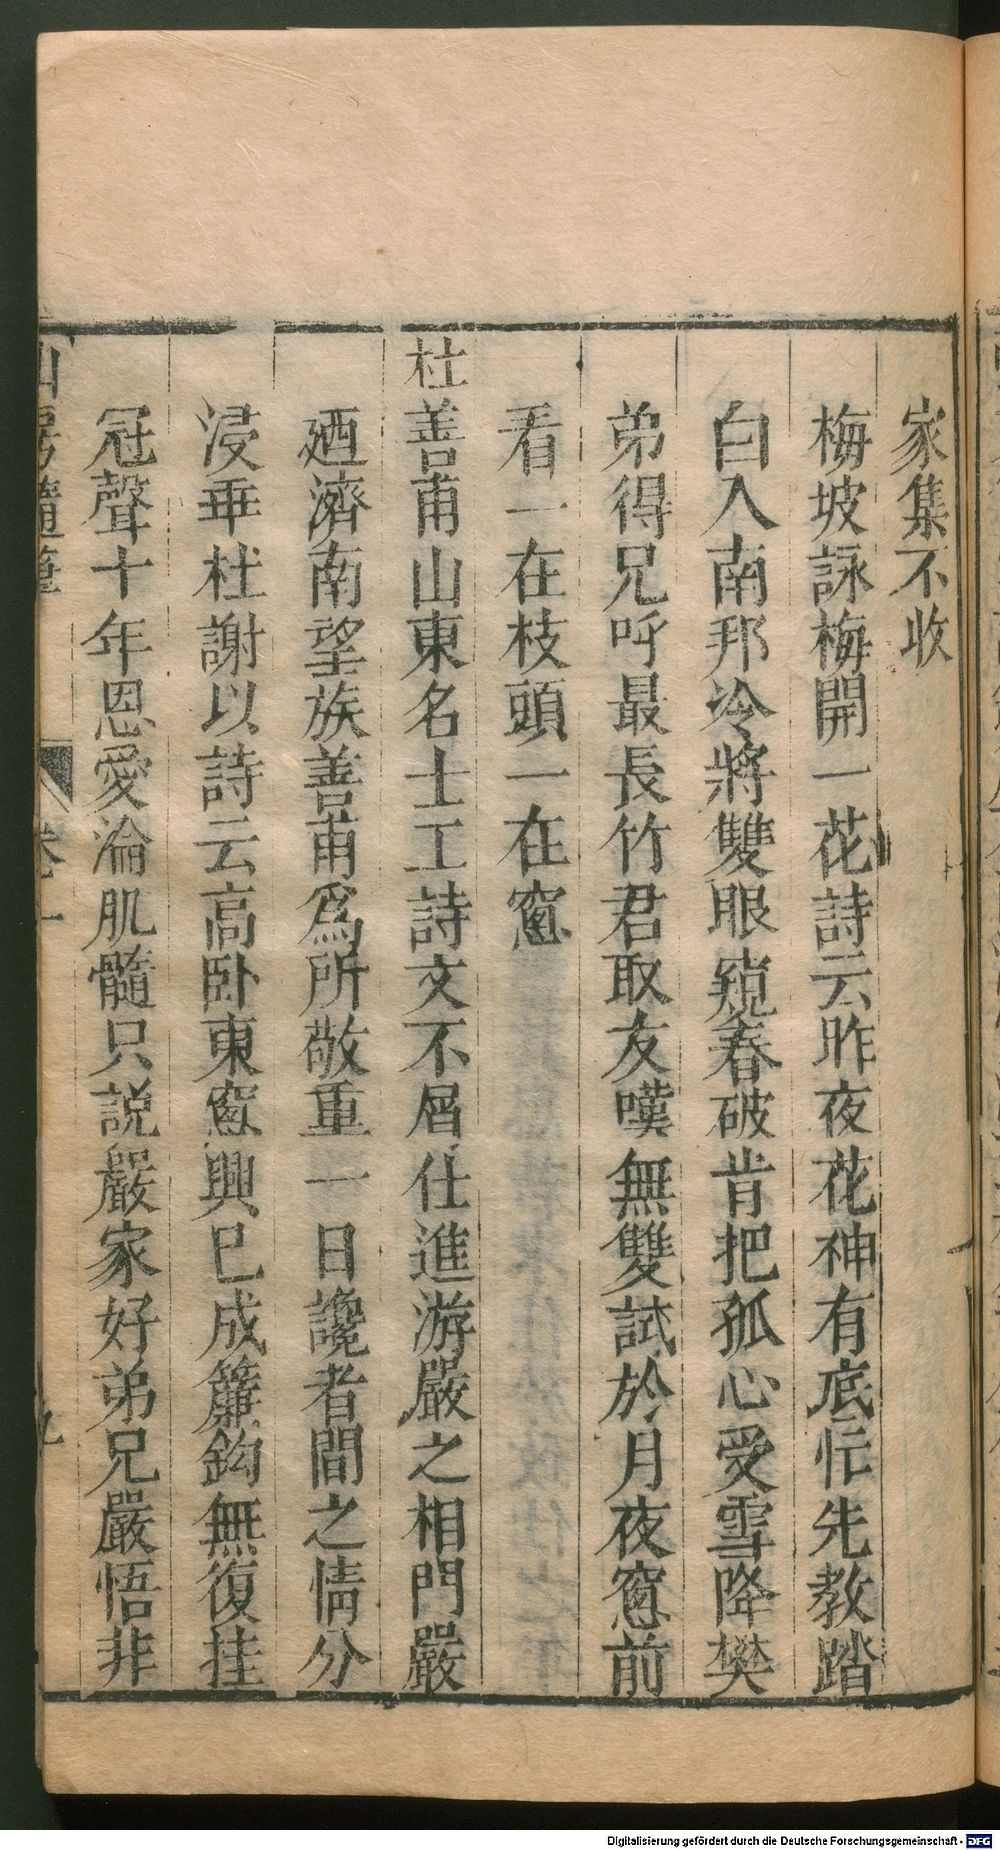 家集不收
梅坡詠梅開一花詩云昨夜花神有底忙先教踏
白入南邦冷將雙眼窺春破肯把孤心受雪降樊
弟得兄呼最長竹君取友嘆無雙試於月夜窻前
看一在枝頭一在窻
杜善甫山東名士工詩文不屑仕進游嚴之相門嚴
廼濟南望族善甫爲所敬重一日讒者間之情分
浸乖杜謝以詩云高卧東窻興已成簾鈎無復挂
冠聲十年恩愛淪肌髓只説嚴家好弟兄嚴悟非
山房隨筆 卷一 九
Digitalisierung gefördert durch die Deutsche Forschungsgemeinschaft - DFG